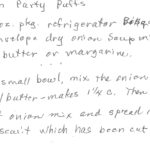 n Party Puffs
oz. pkg. refrigerator
nvelope dry onion soup mi
butter or margarine.
small bowl, mix the onion
/butter - makes 1/2 c. Then
onion mix and spread
scuit which has been cut